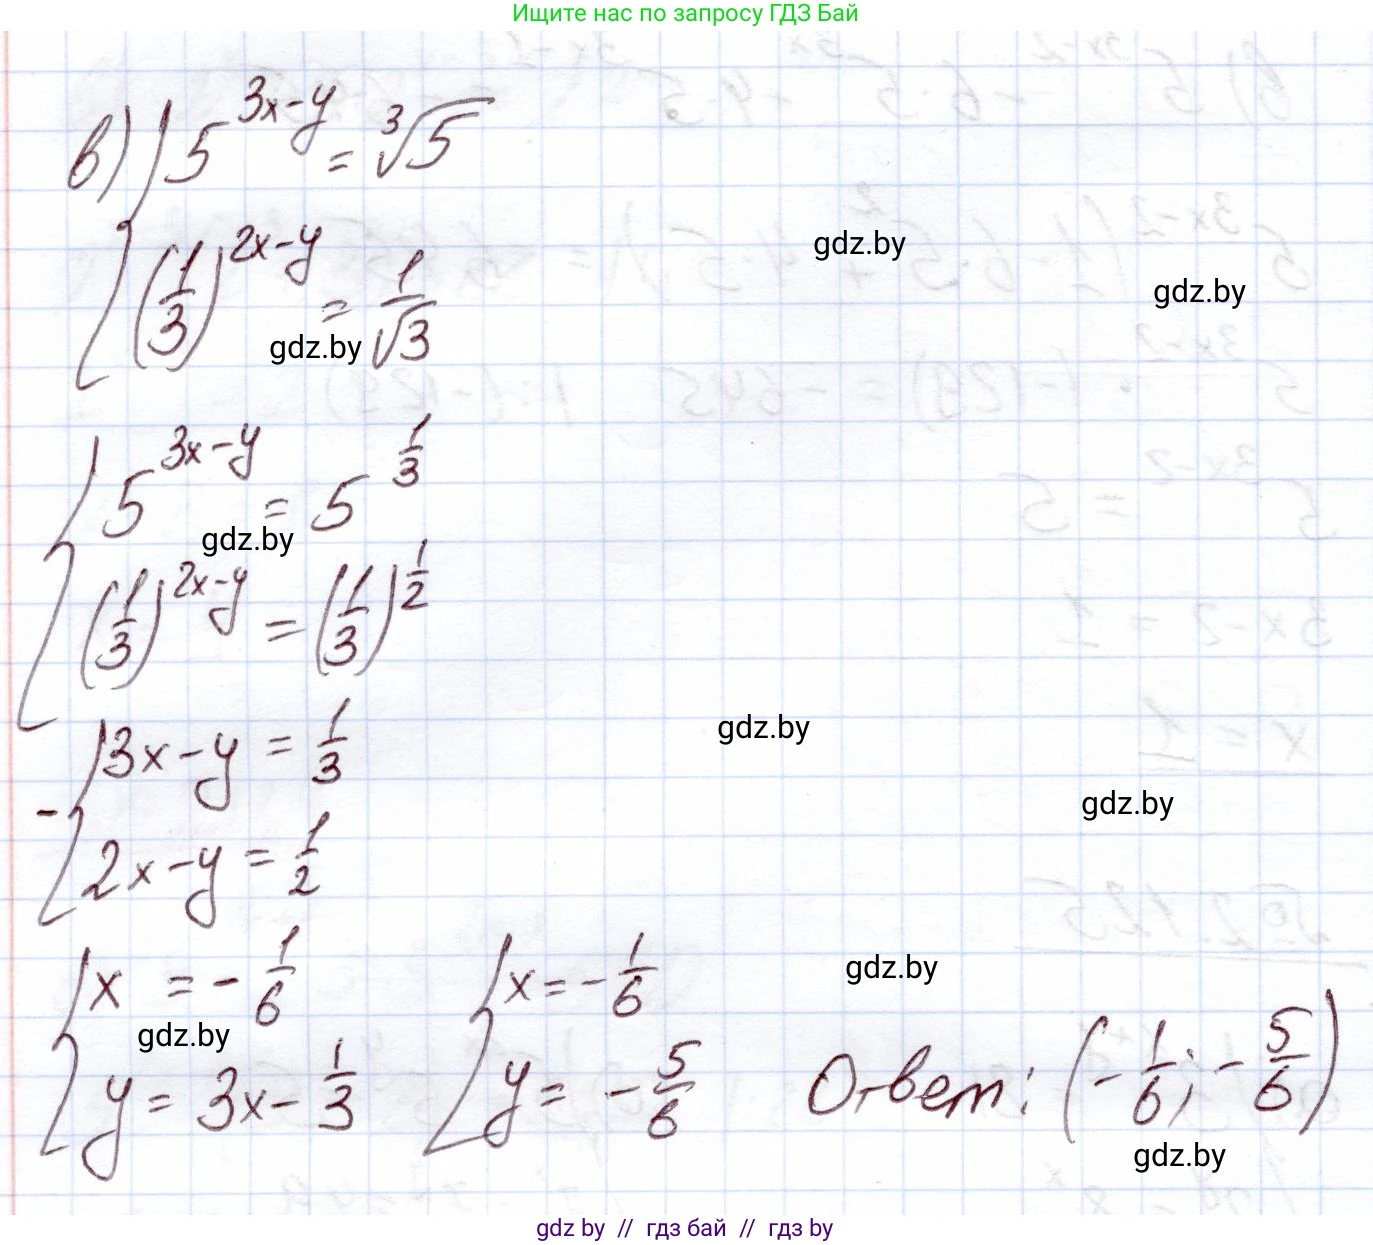 Ищите нас по запросу ГДЗ Бай
в) { 5^(3x-y) = ∛5
(1/3)^(2x-y) = 1/√3
gdz.by
gdz.by
gdz.by
{ 5^(3x-y) = 5^(1/3)
gdz.by
(1/3)^(2x-y) = (1/3)^(1/2)
- { 3x-y = 1/3
gdz.by
gdz.by
2x-y = 1/2
{ x = -1/6
y = 3x - 1/3
gdz.by
{ x = -1/6
y = -5/6
gdz.by
Ответ: (-1/6; -5/6)
gdz.by
gdz by // гдз бай // гдз by